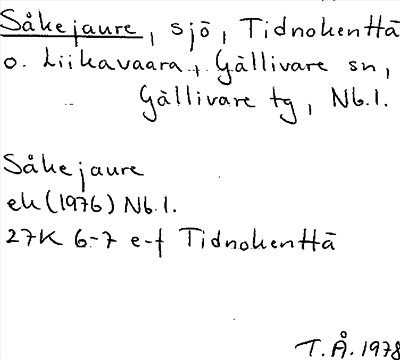 Såkejaure, sjö, Tidnokenttä
o. Liikavaara, Gällivare sn,
Gällivare tg, Nb.l.
Såkejaure
ek (1976) Nb.l.
27K 6-7 e-f Tidnokenttä
T.Å. 1978